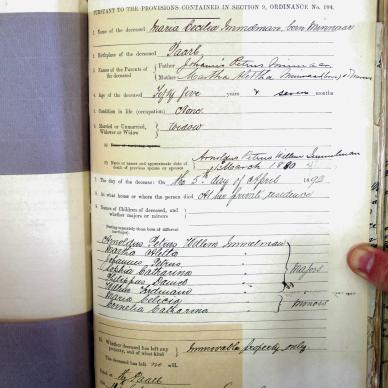 PURSUANT TO THE PROVISIONS CONTAINED IN SECTION 9, ORDINANCE No. 104.
1. Name of the deceased Maria Cecilia Immelman, born Minnaar
2. Birthplace of the deceased Paarl
3. Names of the Parents of the deceased
Father Johannes Petrus Minnaar
Mother Martha Aletta
4. Age of the deceased Fifty five years & seven months
5. Condition in life (occupation) None
6. Married or Unmarried, Widower or Widow Widow
(b) Name or names and approximate date of death of previous spouse or spouses
Arnoldus Petrus Willem Immelman
March 1890
7. The day of the decease: On the 5th day of April 1892
8. At what house or where the person died At her private residence
9. Names of Children of deceased, and whether majors or minors
(stating separately those born of different marriages).
Arnoldus Petrus Willem Immelman
Martha Aletta
Johannes Petrus
Sophia Catharina
Philippus David
Willem Ferdinand
Majors
Maria Cecilia
Cornelia Catharina
Minors
10. Whether deceased has left any property, and of what kind Immovable property only.
The deceased has left no will.
Dated at the Paarl